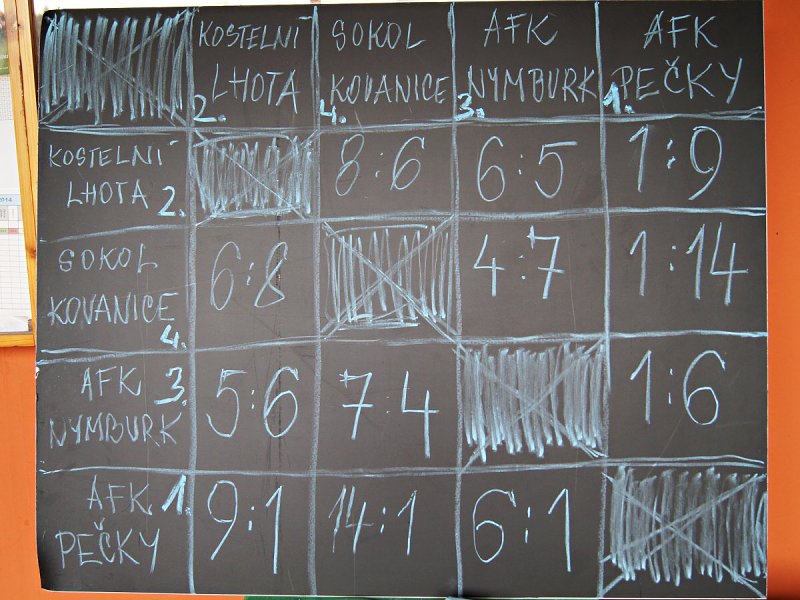 KOSTELNÍ LHOTA 2.
SOKOL KOVANICE 4.
AFK NYMBURK 3.
AFK PEČKY 1.
KOSTELNÍ LHOTA 2. 8:6 6:5 1:9
SOKOL KOVANICE 4. 6:8 4:7 1:14
AFK NYMBURK 3. 5:6 7:4 1:6
AFK PEČKY 1. 9:1 14:1 6:1
2014